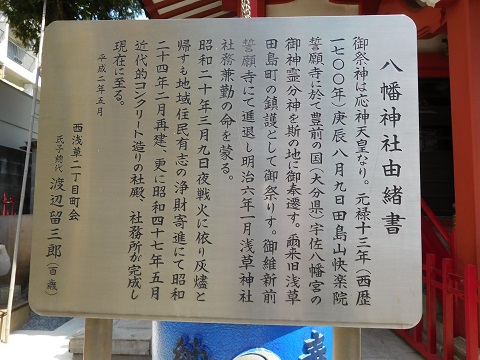 八幡神社由緒書
御祭神は応神天皇なり。元禄十三年(西歴
一七〇〇年)庚辰八月九日田島山快楽院
誓願寺に於て豊前の国(大分県)宇佐八幡宮の
御神霊分神を斯の地に御奉遷す。爾来旧浅草
田島町の鎮護として御祭りす。御維新前
誓願寺にて進退し明治六年一月浅草神社
社務兼勤の命を蒙る。
昭和二十年三月九日夜戦火に依り灰燼と
帰すも地域住民有志の浄財寄進にて昭和
二十四年二月再建、更に昭和四十七年五月
近代的コンクリート造りの社殿、社務所が完成し
現在に至る。
平成二年五月
西浅草二丁目町会
氏子総代 渡辺留三郎(百歳)
奉
納